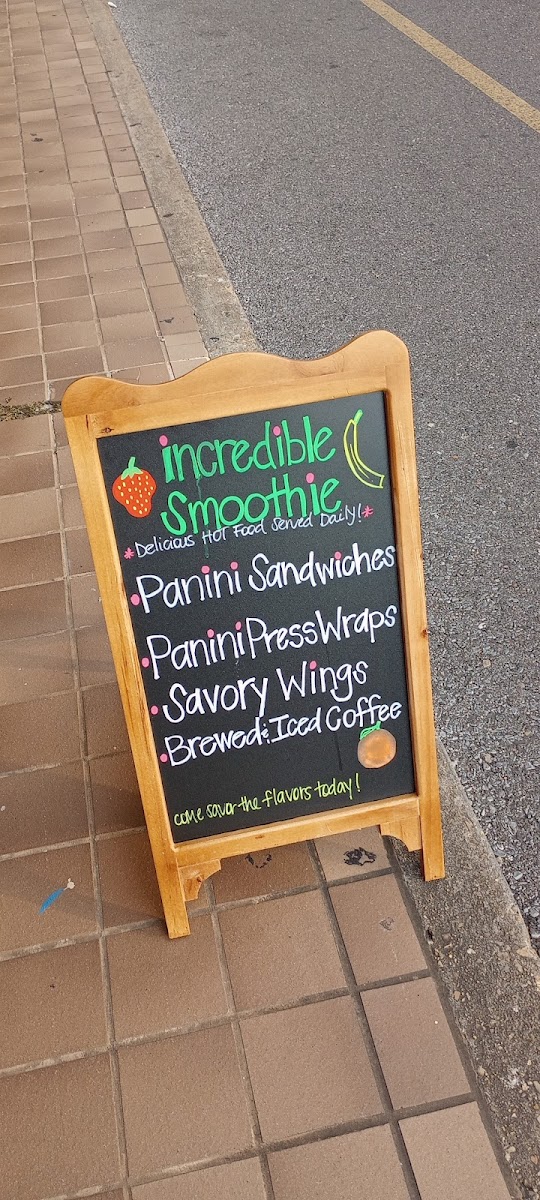 incredible
Smoothie
*Delicious Hot Food Served Daily!*
• Panini Sandwiches
• Panini Press Wraps
• Savory Wings
• Brewed & Iced Coffee
come savor the flavors today!